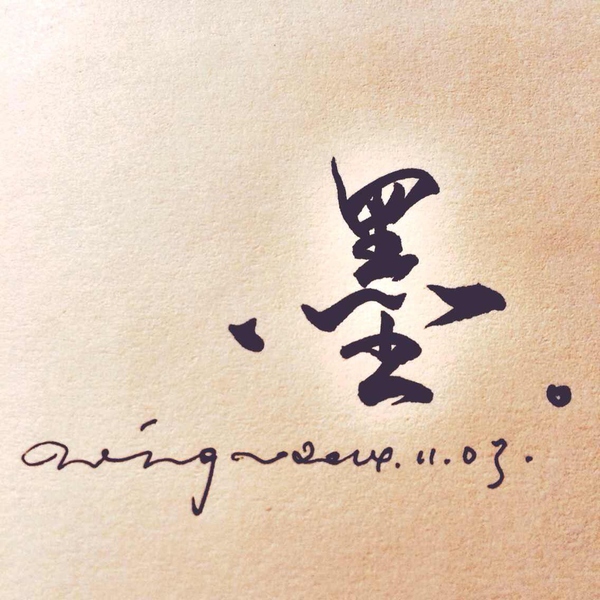 墨。
Wing 2014.11.03.